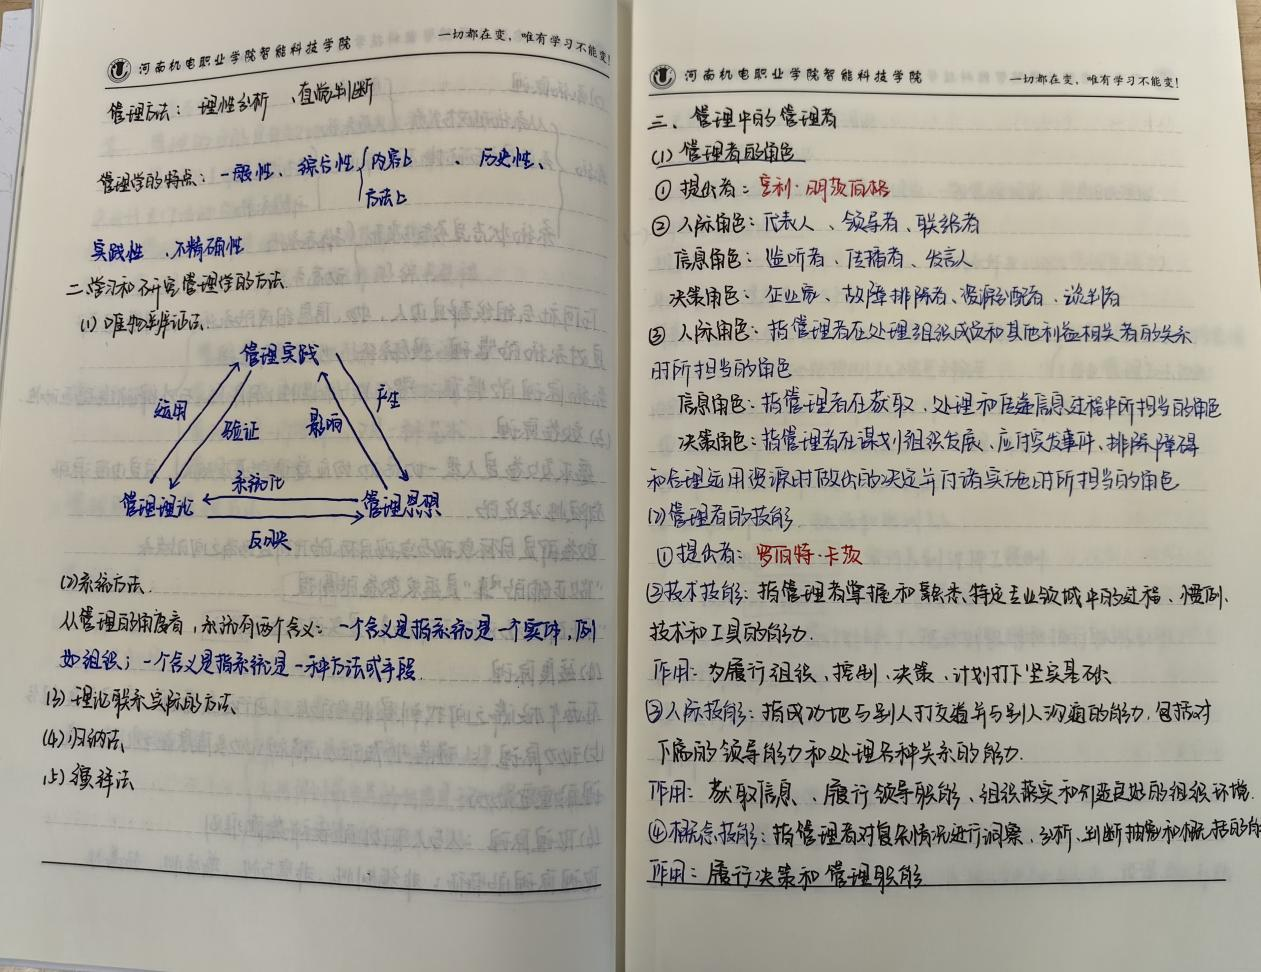 河南机电职业学院智能科技学院
一切都在变，唯有学习不能变！
管理方法：理性分析、直觉判断
管理学的特点：一般性、综合性{内容上、历史性、
方法上
实践性、不精确性
二、学习和研究管理学的方法
(1)唯物辩证法
管理实践
运用
验证
影响
产生
管理理论
系统化
管理思想
反映
(2)系统方法.
从管理的角度看，系统有两个含义：一个含义是指系统是一个实体，例
如组织；一个含义是指系统是一种方法或手段.
(3)理论联系实际的方法
(4)归纳法
(5)演绎法
河南机电职业学院智能科技学院
一切都在变，唯有学习不能变！
三、管理中的管理者
(1)管理者的角色
①提出者：亨利·明茨伯格
②人际角色：代表人、领导者、联络者
信息角色：监听者、传播者、发言人
决策角色：企业家、故障排除者、资源分配者、谈判者
③人际角色：指管理者在处理组织成员和其他利益相关者的关系
时所担当的角色
信息角色：指管理者在获取、处理和传递信息过程中所担当的角色
决策角色：指管理者在谋划组织发展、应对突发事件、排除障碍
和合理运用资源时做出的决定并付诸实施时所担当的角色
(2)管理者的技能
①提出者：罗伯特·卡茨
②技术技能：指管理者掌握和熟悉特定专业领域中的过程、惯例、
技术和工具的能力.
作用：为履行组织、控制、决策、计划打下坚实基础
③人际技能：指成功地与别人打交道并与别人沟通的能力，包括对
下属的领导能力和处理各种关系的能力.
作用：获取信息、履行领导职能、组织落实和创造良好的组织环境.
④概念技能：指管理者对复杂情况进行洞察、分析、判断抽象和概括的
作用：履行决策和管理职能